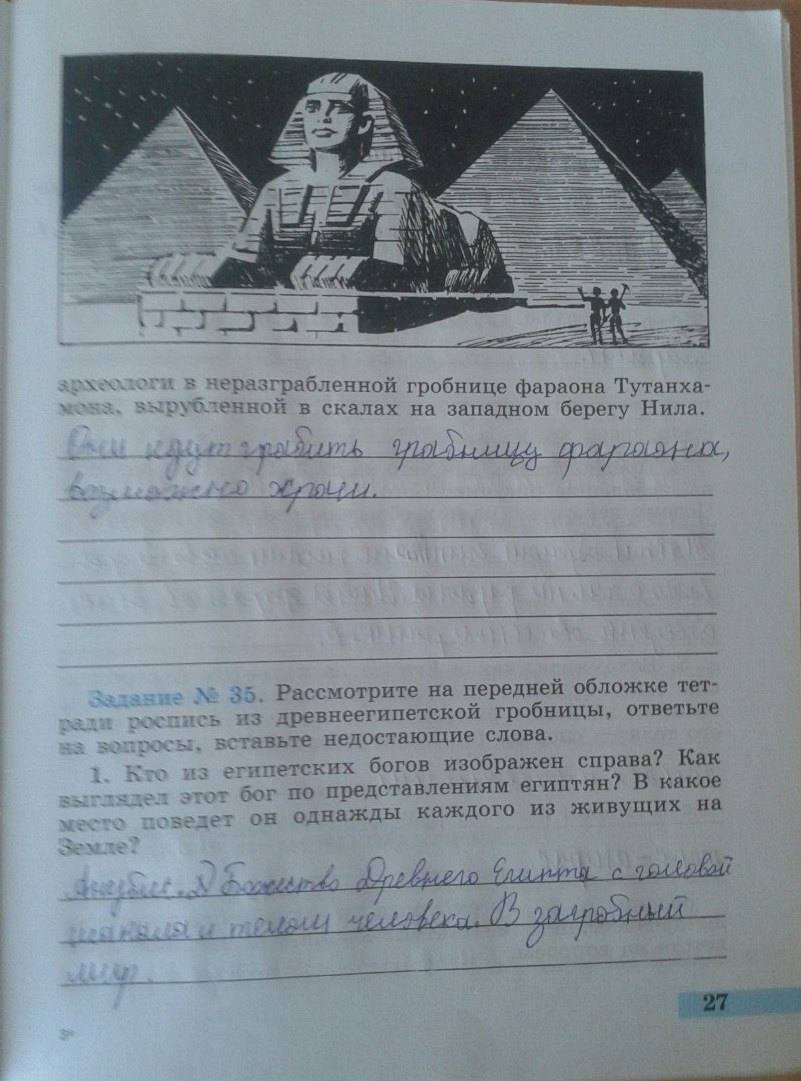 археологи в неразграбленной гробнице фараона Тутанха-
мона, вырубленной в скалах на западном берегу Нила.
Они идут грабить грабницу фараона,
возможно храм.
Задание № 35. Рассмотрите на передней обложке тет-
ради роспись из древнеегипетской гробницы, ответьте
на вопросы, вставьте недостающие слова.
1. Кто из египетских богов изображен справа? Как
выглядел этот бог по представлениям египтян? В какое
место поведет он однажды каждого из живущих на
Земле?
Анубис. Божество Древнего Египта с головой
шакала и телом человека. В загробный
мир.
27
3*